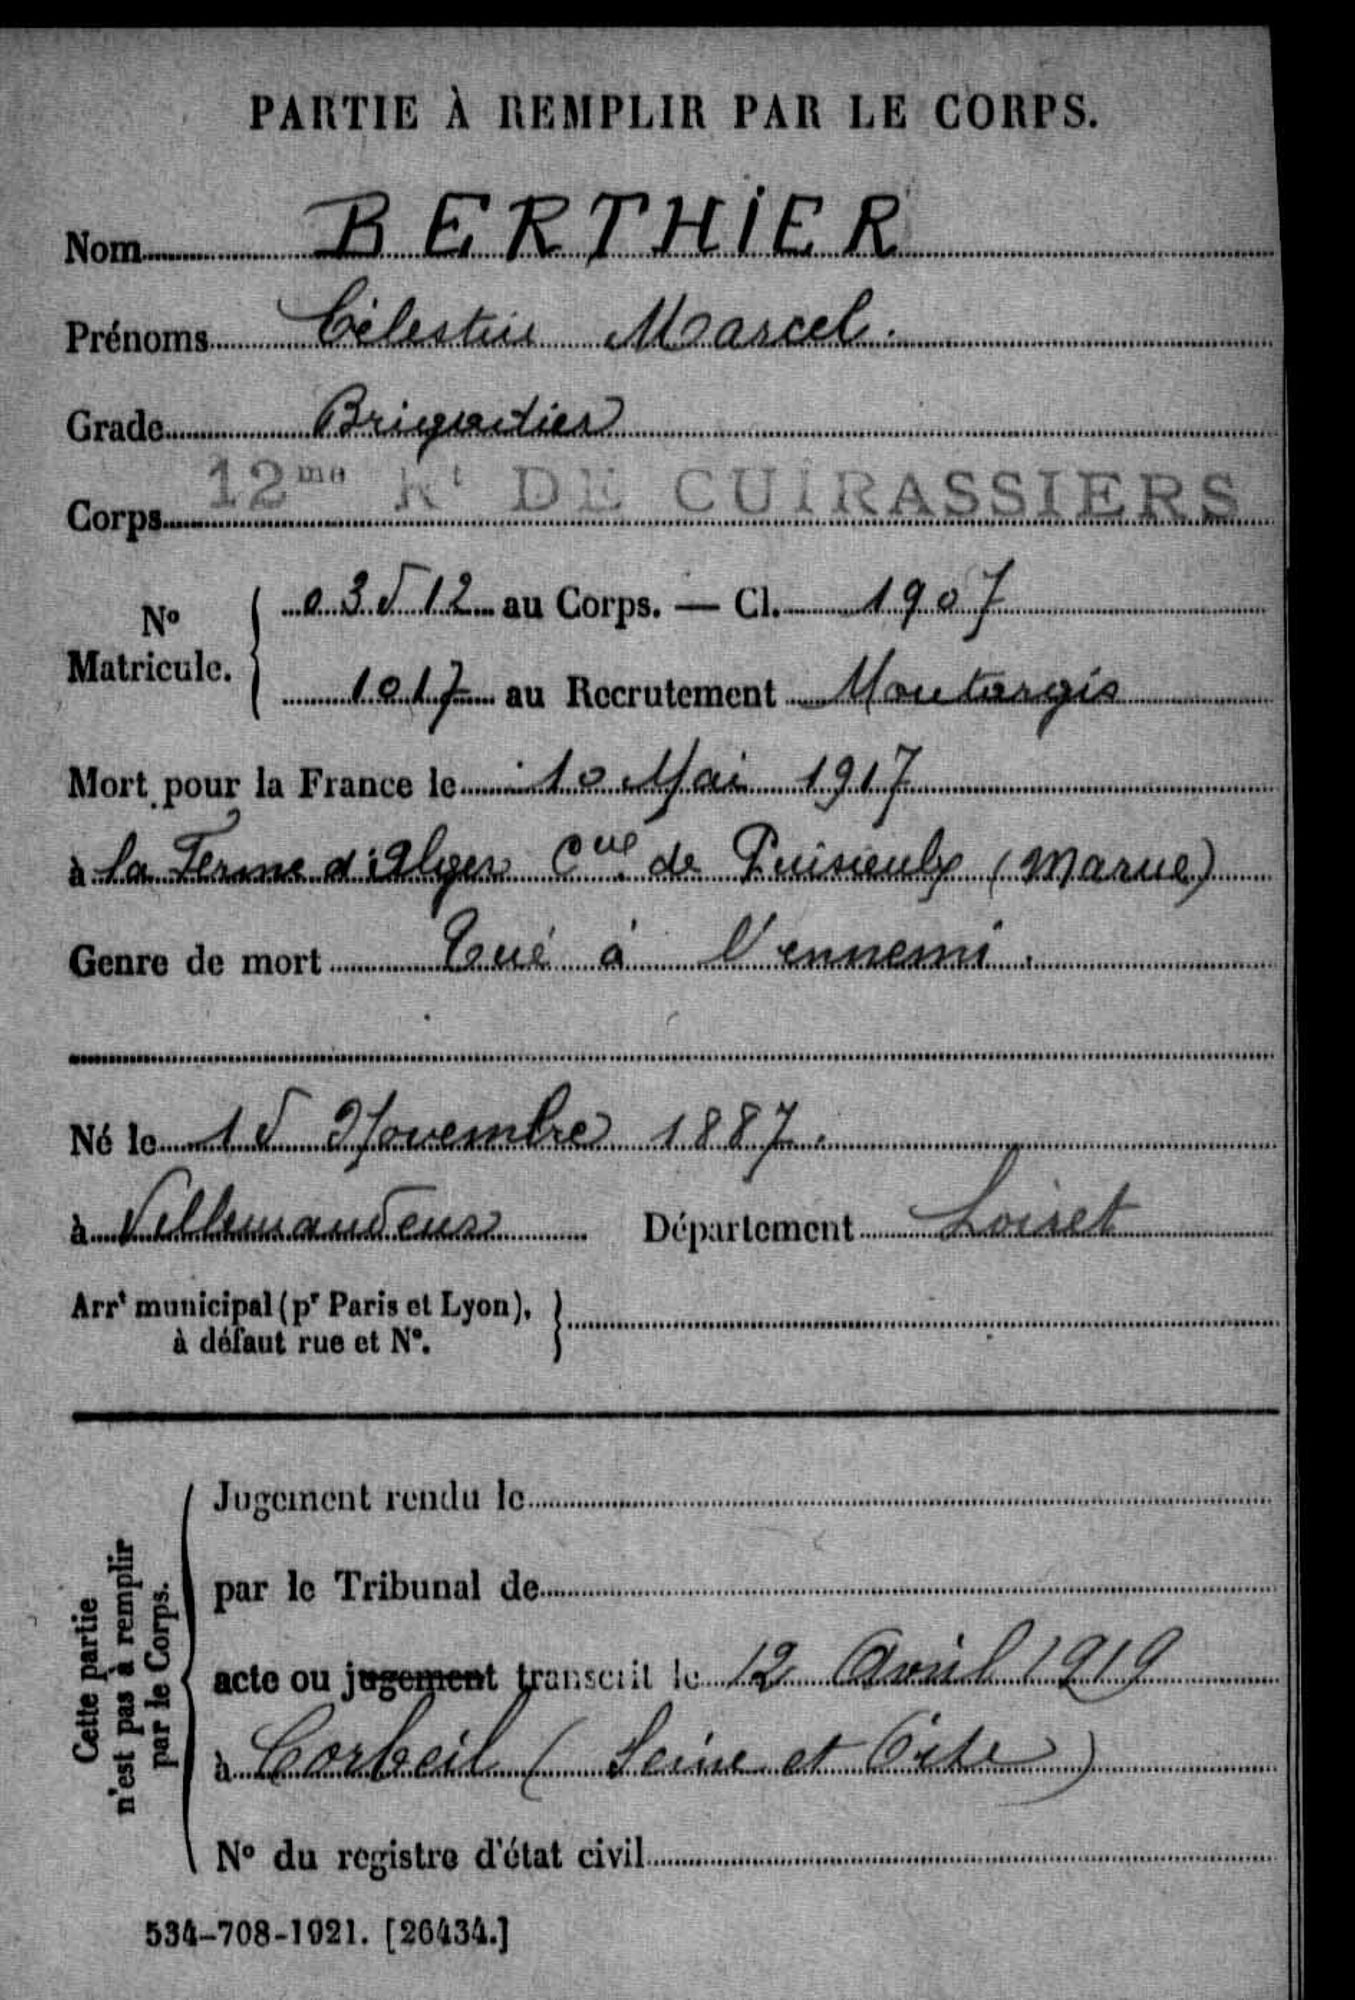 PARTIE À REMPLIR PAR LE CORPS.
Nom BERTHIER
Prénoms Célestin Marcel.
Grade Brigadier
Corps 12me Rt DE CUIRASSIERS
No Matricule. { 03512 au Corps. — Cl. 1907
1017 au Recrutement Montargis
Mort pour la France le 10 Mai 1917
à la Ferme d'Alger Cne de Puisieulx (Marne)
Genre de mort Tué à l'ennemi.
Né le 15 Novembre 1887.
à Villemandeur Département Loiret
Arrt municipal (pr Paris et Lyon), }
à défaut rue et No.
Cette partie
n'est pas à remplir
par le Corps.
Jugement rendu le
par le Tribunal de
acte ou jugement transcrit le 12 Avril 1919
à Corbeil (Seine et Oise)
No du registre d'état civil
534-708-1921. [26434.]